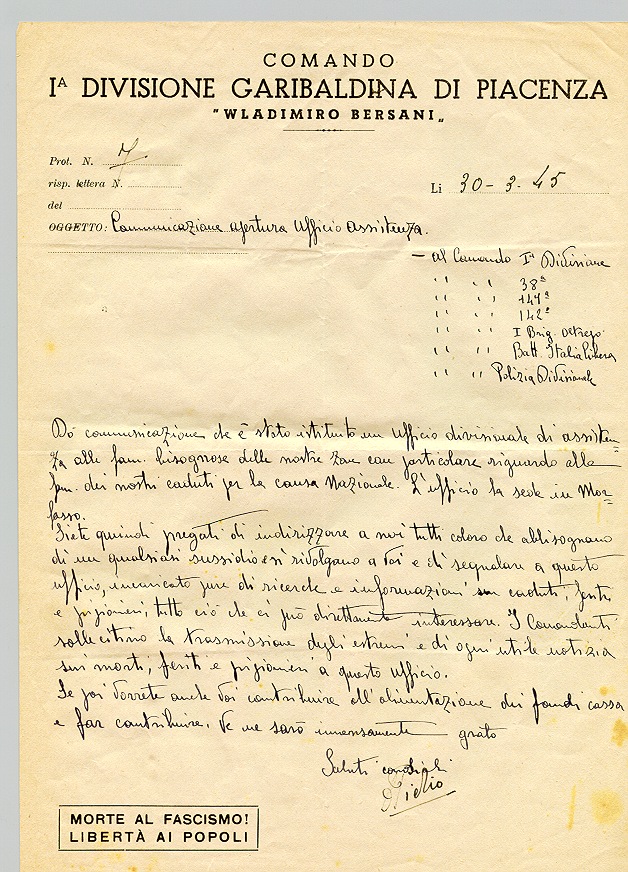 COMANDO
Iᴬ DIVISIONE GARIBALDINA DI PIACENZA
"WLADIMIRO BERSANI„
Prot. N. 7
risp. lettera N.
Li 30-3-45
del
OGGETTO: Comunicazione apertura Ufficio Assistenza.
- Al Comando Iª Divisione
" " 38ª
" " 141ª
" " 142ª
" " I Brig. Oltrepò
" " Batt. Italia Libera
" " Polizia Divisionale
Dò comunicazione che è stato istituito un Ufficio divisionale di assisten-
za alle fam. bisognose delle nostre zone con particolare riguardo alle
fam. dei nostri caduti per la causa Nazionale. L'ufficio ha sede in Mor-
fasso.
Siete quindi pregati di indirizzare a noi tutti coloro che abbisognano
di un qualsiasi sussidio e si rivolgano a Voi e di segnalare a questo
ufficio, incaricato pure di ricerche e informazioni su caduti, feriti
e prigionieri, tutto ciò che ci può direttamente interessare. I Comandanti
sollecitino la trasmissione degli estremi e di ogni utile notizia
sui morti, feriti e prigionieri a questo ufficio.
Se poi vorrete anche Voi contribuire all'alimentazione dei fondi cassa
e far contribuire, Ve ne sarò immensamente grato
Saluti cordiali
MORTE AL FASCISMO!
LIBERTÀ AI POPOLI